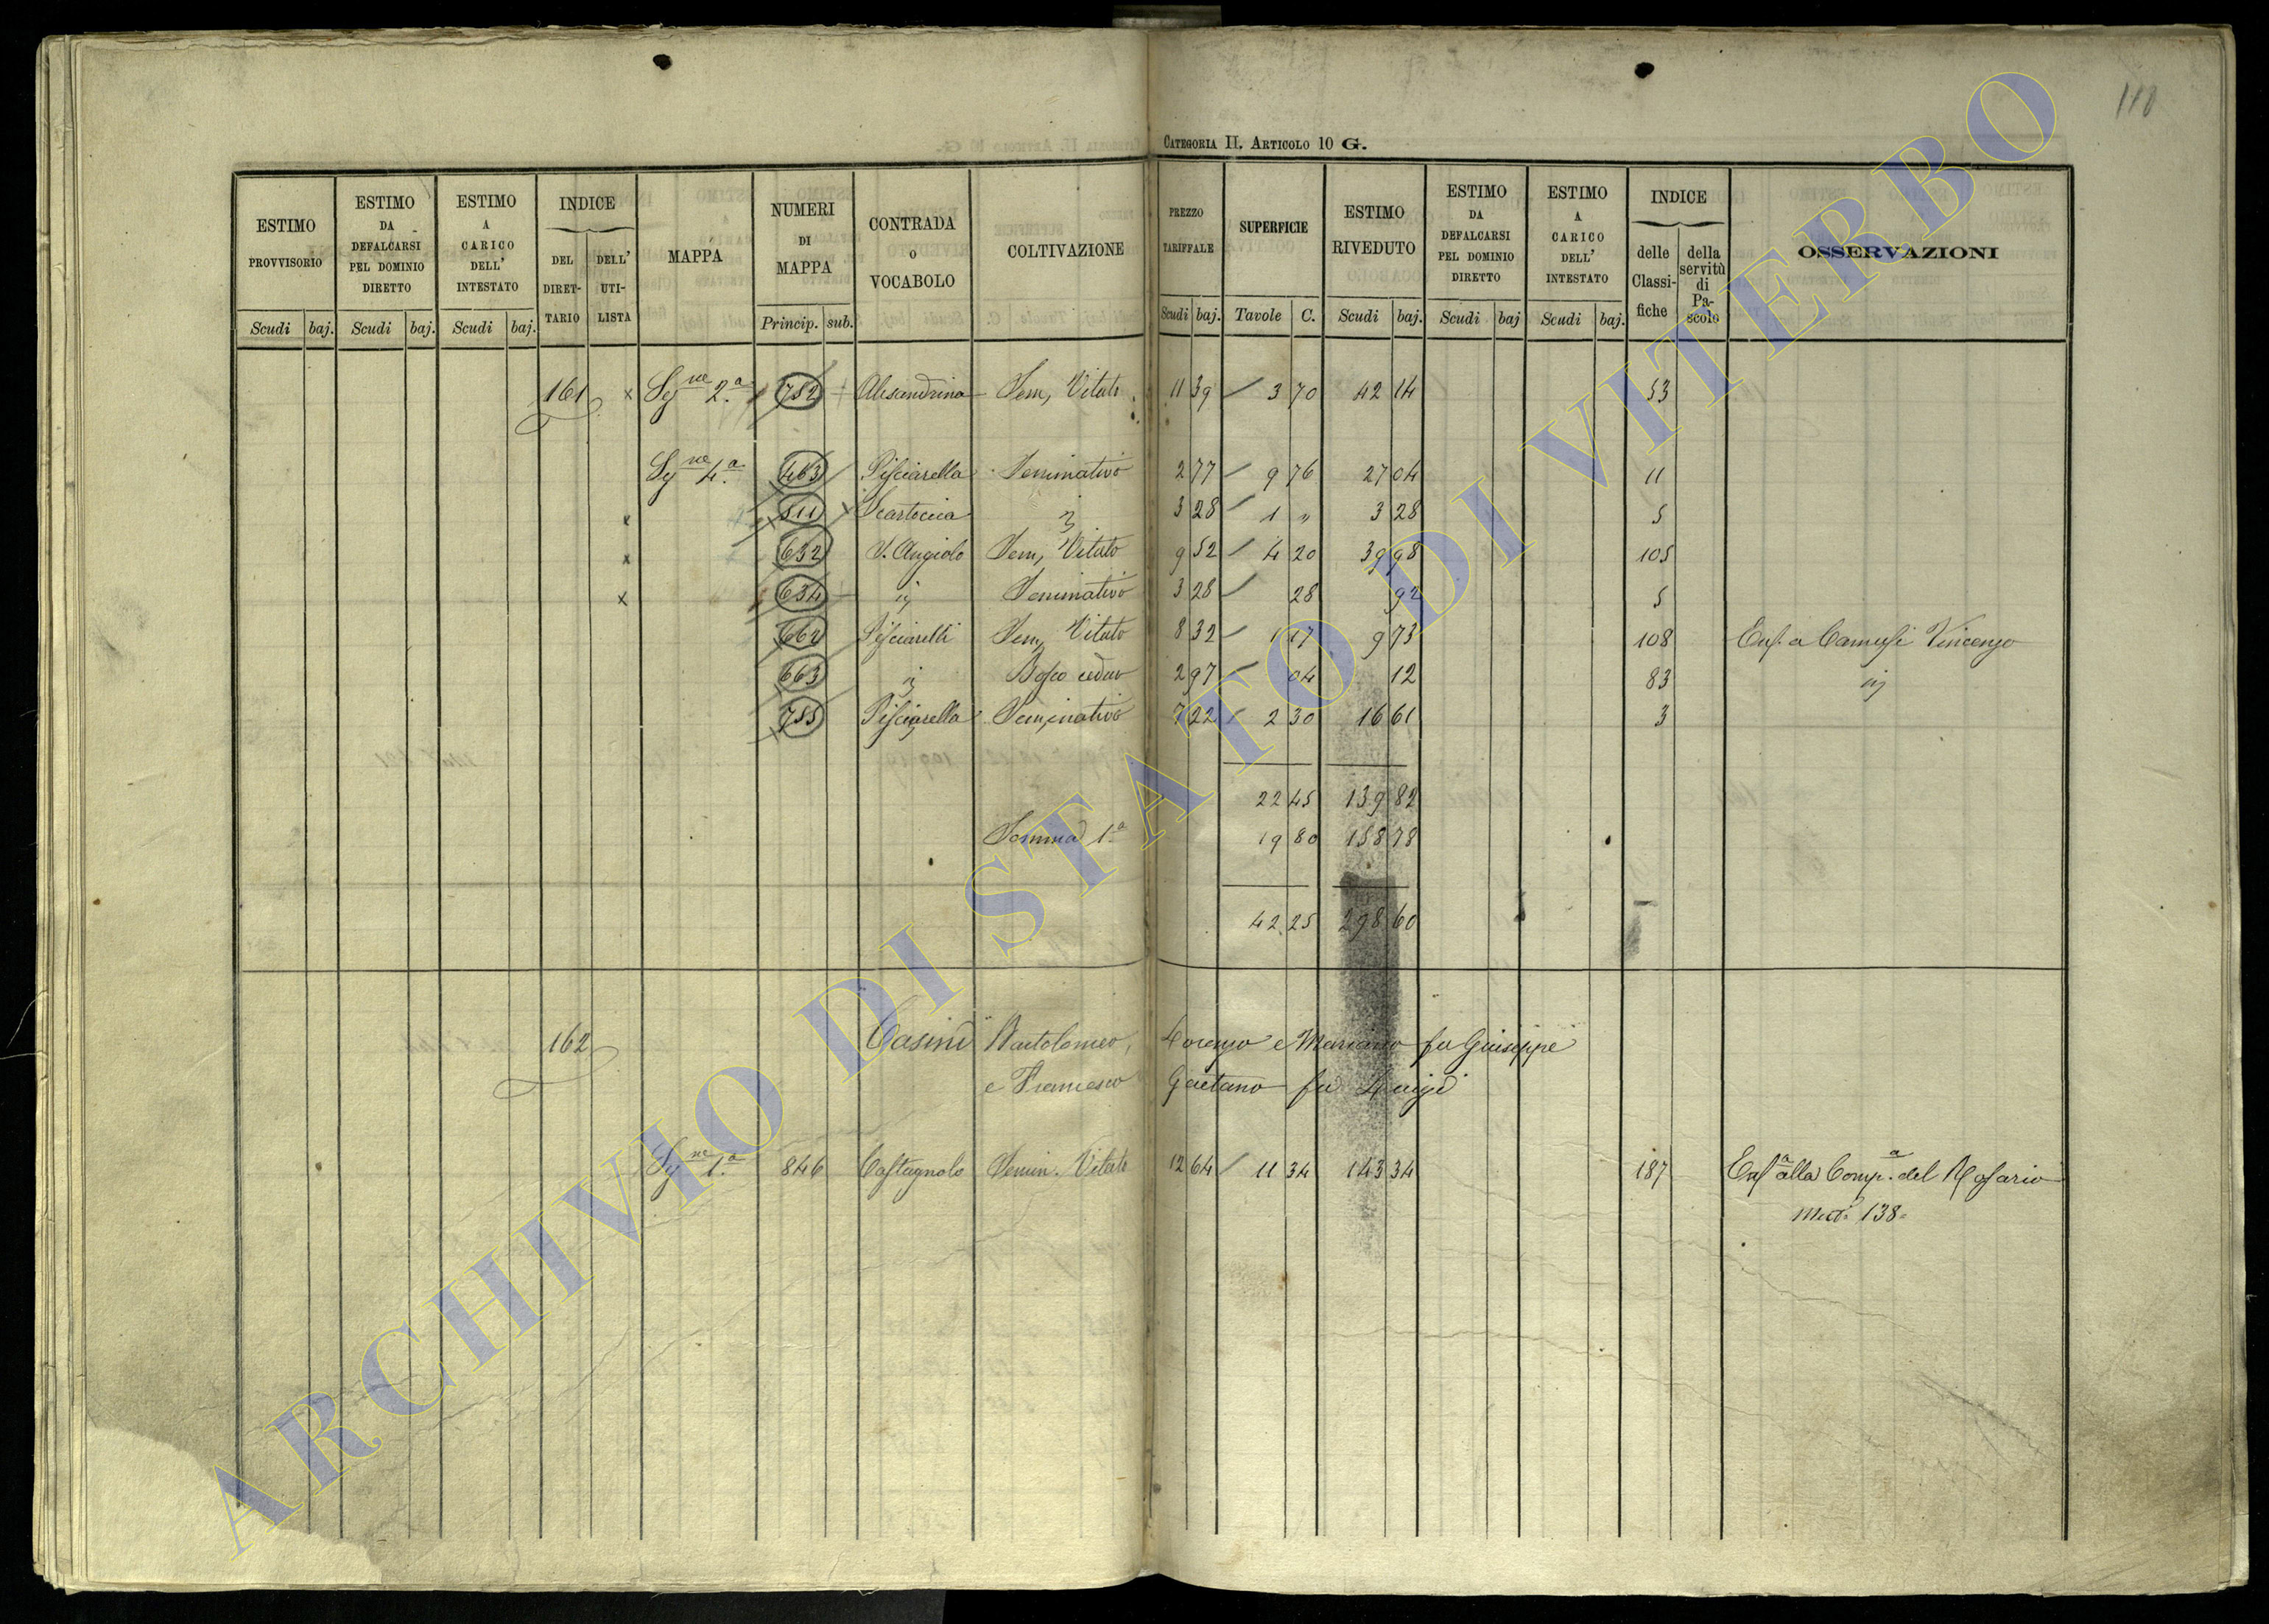 110
CATEGORIA II. ARTICOLO 10 G.
ESTIMO PROVVISORIO
ESTIMO DA DEFALCARSI PEL DOMINIO DIRETTO
ESTIMO A CARICO DELL' INTESTATO
INDICE
DEL DIRETTARIO
DELL' UTILISTA
MAPPA
NUMERI DI MAPPA
CONTRADA O VOCABOLO
COLTIVAZIONE
PREZZO TARIFFALE
SUPERFICIE
ESTIMO RIVEDUTO
ESTIMO DA DEFALCARSI PEL DOMINIO DIRETTO
ESTIMO A CARICO DELL' INTESTATO
INDICE
delle Classifiche
della servitù di Pascolo
OSSERVAZIONI
Scudi baj. Scudi baj. Scudi baj. Princip. sub. Scudi baj. Tavole C. Scudi baj. Scudi baj Scudi baj.
161 x 2.a 752 Alesandrina Sem, Vitato 11 39 3 70 42 14 53
4.a 463 Pisciarella Seminativo 2 77 9 76 27 04 11
x 511 3 28 1 " 3 28 5
x 632 S. Angiolo Sem, Vitato 9 52 4 20 39 98 105
x 634 Seminativo 3 28 28 92 5
662 Pisciarelli Sem, Vitato 8 32 1 17 9 73 108 Enf. a Camusi Vincenzo
663 Bosco ceduo 2 97 04 12 83
755 Pisciarella Seminativo 7 22 2 30 16 61 3
22 45 139 82
Somma 1a 19 80 158 78
42 25 298 60
162 Casini Bartolomeo, Lorenzo e Mariano fu Giuseppe
e Francesco Gaetano fu Luigi
1.a 846 Castagnolo Semin. Vitato 12 64 11 34 143 34 187 Enf.a alla Comp.a del Rosario
138
ARCHIVIO DI STATO DI VITERBO